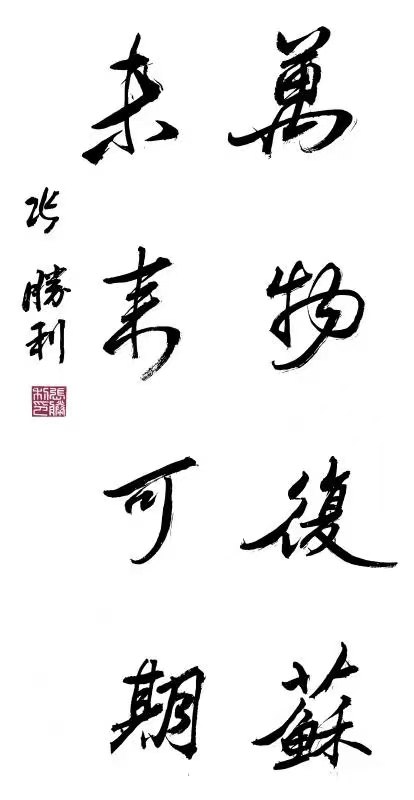 萬物復蘇
未来可期
张勝利
張勝利印